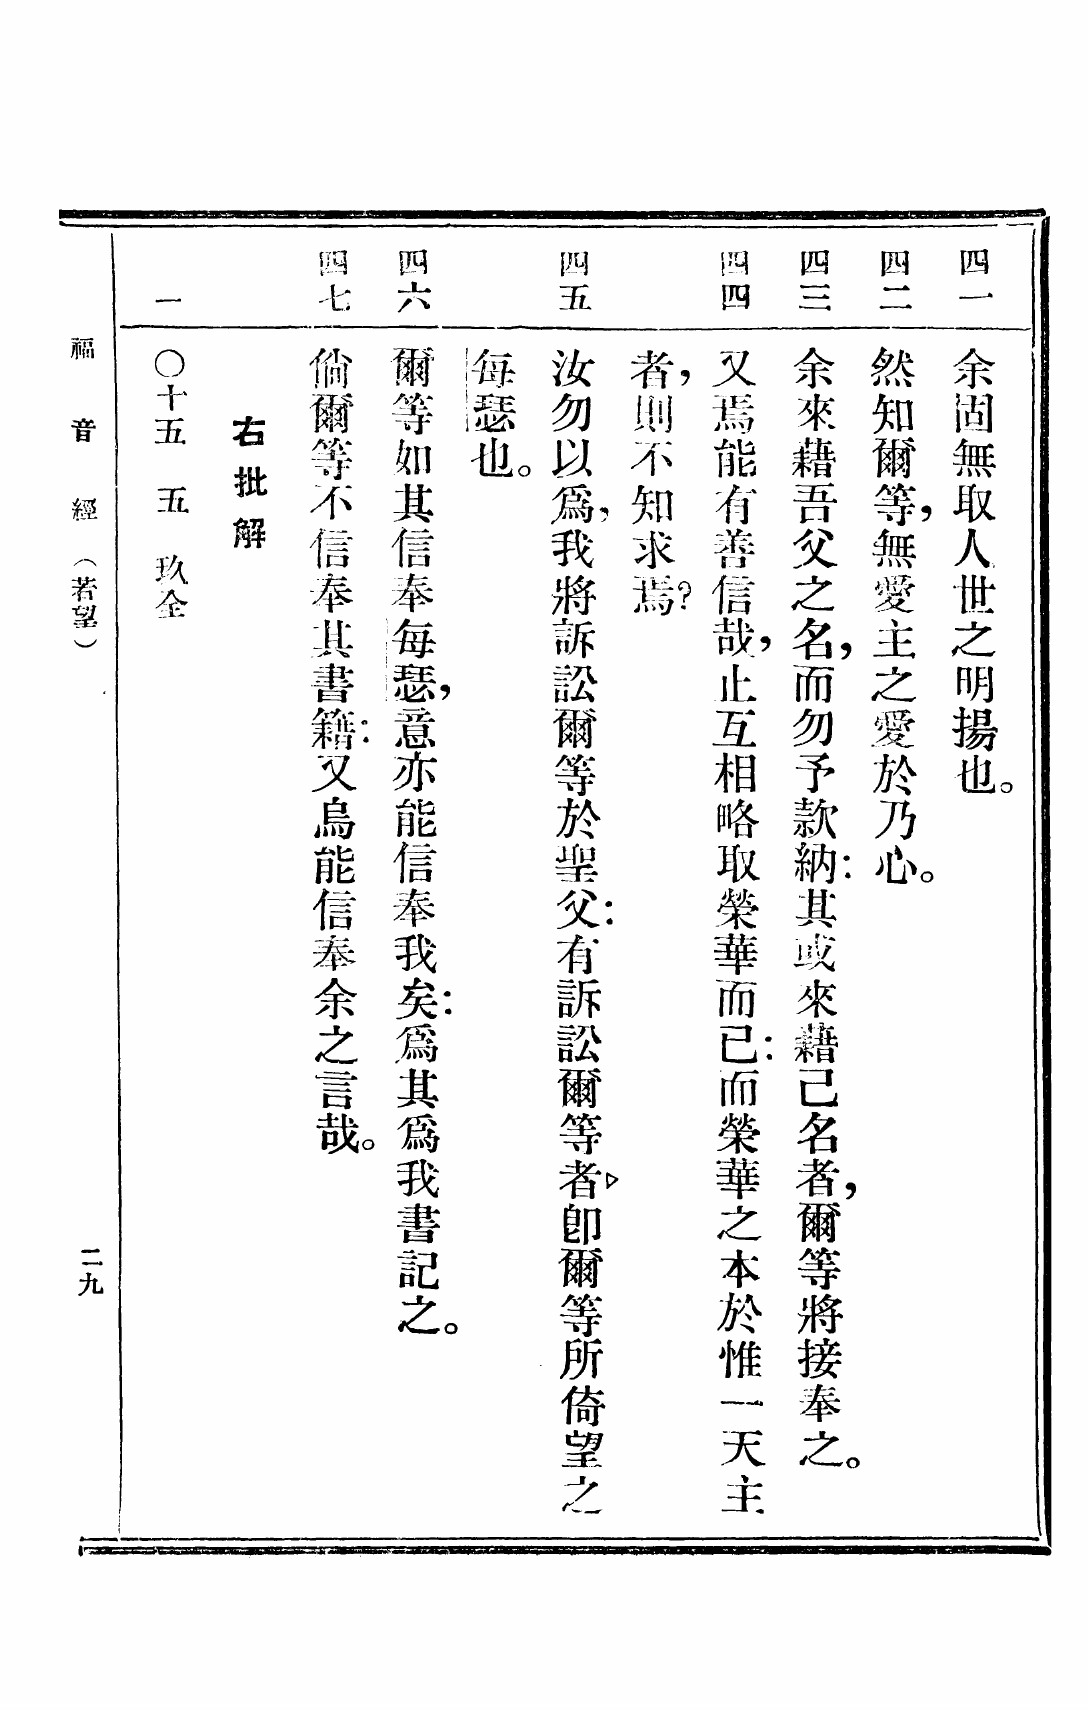 四一 余固無取人世之明揚也。
四二 然知爾等，無愛主之愛於乃心。
四三 余來藉吾父之名，而勿予款納：其或來藉己名者，爾等將接奉之。
四四 又焉能有善信哉，止互相略取榮華而已：而榮華之本於惟一天主
者，則不知求焉？
四五 汝勿以爲，我將訴訟爾等於聖父：有訴訟爾等者，卽爾等所倚望之
每瑟也。
四六 爾等如其信奉每瑟，意亦能信奉我矣：爲其爲我書記之。
四七 倘爾等不信奉其書籍：又烏能信奉余之言哉。
右批解
一 〇十五 五 玖全
福音經（若望）
二九